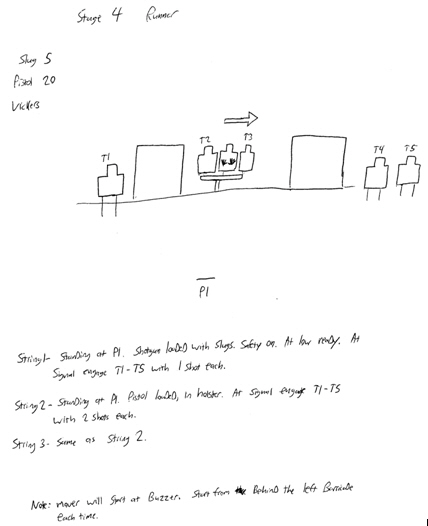 Stage 4 Runner
Slug 5
Pistol 20
Vickers
T1
T2
T3
T4
T5
P1
String 1- Standing at P1. Shotgun loaded with Slugs. Safety on. At low ready. At
Signal engage T1-T5 with 1 shot each.
String 2- Standing at P1. Pistol loaded, in holster. At signal engage T1-T5
with 2 shots each.
String 3- Same as String 2.
Note: mover will start at Buzzer. Start from Behind the left Barricade
each time.